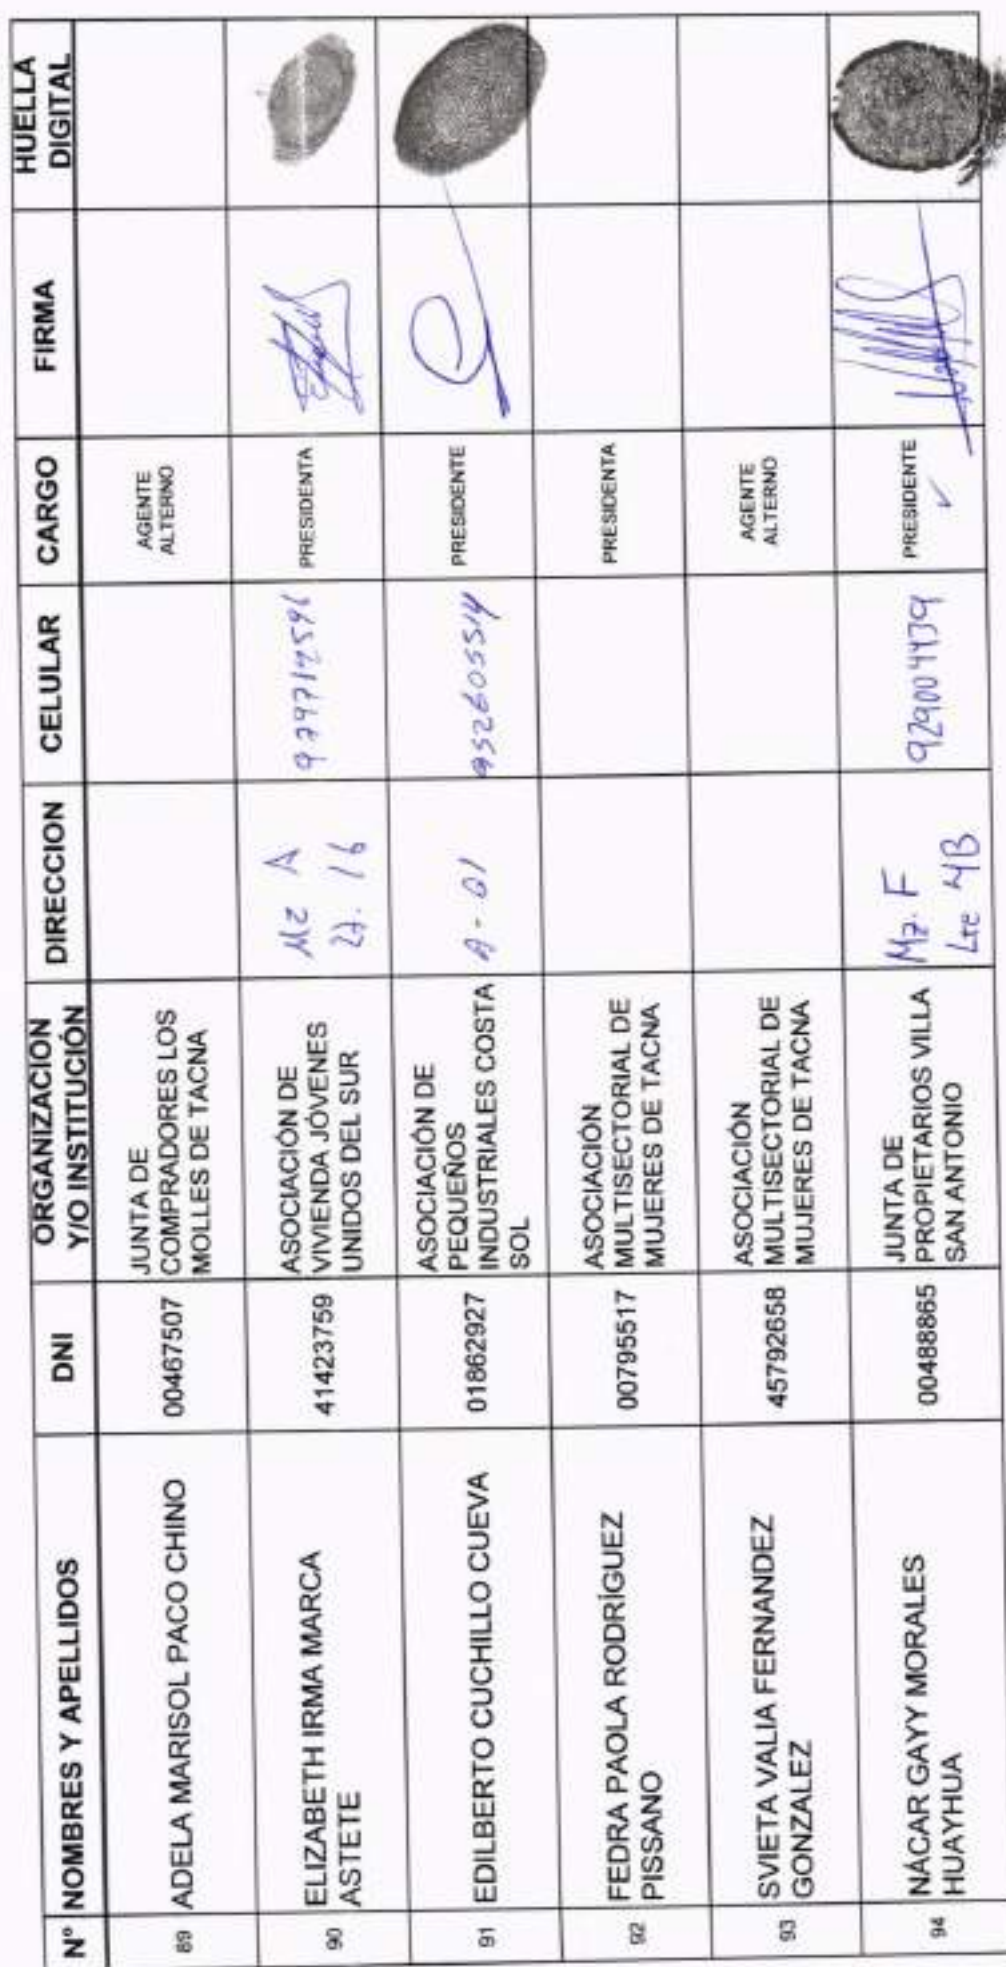 N° NOMBRES Y APELLIDOS DNI ORGANIZACION Y/O INSTITUCIÓN DIRECCION CELULAR CARGO FIRMA HUELLA DIGITAL
89 ADELA MARISOL PACO CHINO 00467507 JUNTA DE COMPRADORES LOS MOLLES DE TACNA AGENTE ALTERNO
90 ELIZABETH IRMA MARCA ASTETE 41423759 ASOCIACIÓN DE VIVIENDA JÓVENES UNIDOS DEL SUR Mz A 16 PRESIDENTA
91 EDILBERTO CUCHILLO CUEVA 01862927 ASOCIACIÓN DE PEQUEÑOS INDUSTRIALES COSTA SOL A-01 952605514 PRESIDENTE
92 FEDRA PAOLA RODRÍGUEZ PISSANO 00795517 ASOCIACIÓN MULTISECTORIAL DE MUJERES DE TACNA PRESIDENTA
93 SVIETA VALIA FERNANDEZ GONZALEZ 45792658 ASOCIACIÓN MULTISECTORIAL DE MUJERES DE TACNA AGENTE ALTERNO
94 NÁCAR GAYY MORALES HUAYHUA 00488865 JUNTA DE PROPIETARIOS VILLA SAN ANTONIO Mz. F Lte 4B 929004439 PRESIDENTE